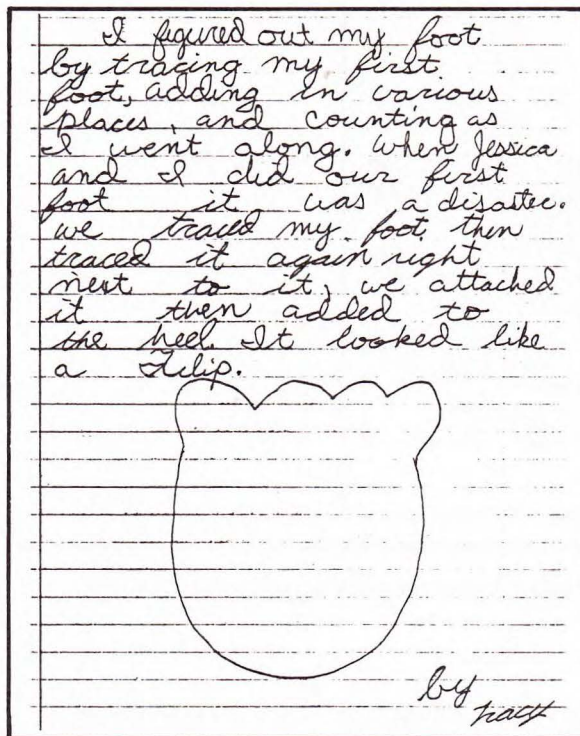 I figured out my foot
by tracing my first
foot, adding in various
places, and counting as
I went along. When Jessica
and I did our first
foot it was a disaster.
we traced my foot then
traced it again right
next to it, we attached
it then added to
the heel. It looked like
a Tulip.
by
Tracy